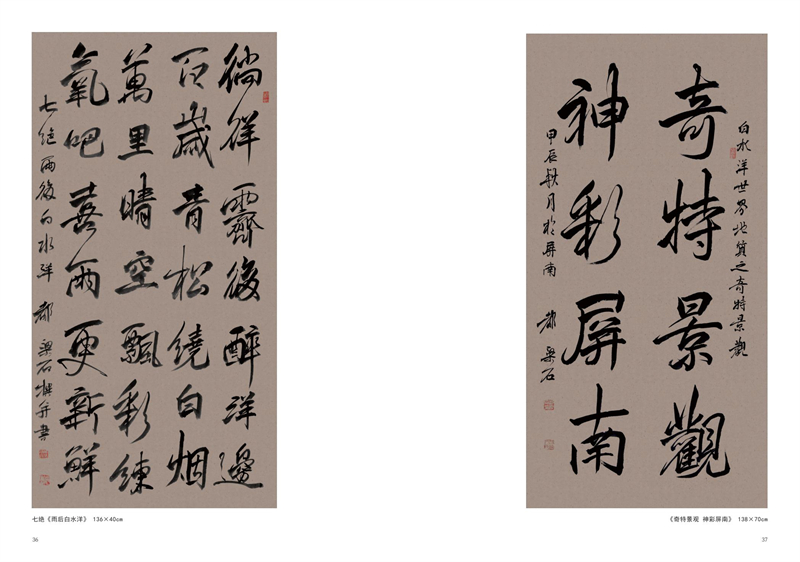 徜徉霽後醉洋邊
百歲青松繞白烟
萬里晴空飄彩練
氧吧喜雨更新鮮
七絶雨後白水洋 都梁石撰并書
七绝《雨后白水洋》 136×40cm
36
白水洋世界地質之奇特景觀
奇特景觀
神彩屏南
甲辰秋月於屏南 都梁石
《奇特景观 神彩屏南》 138×70cm
37